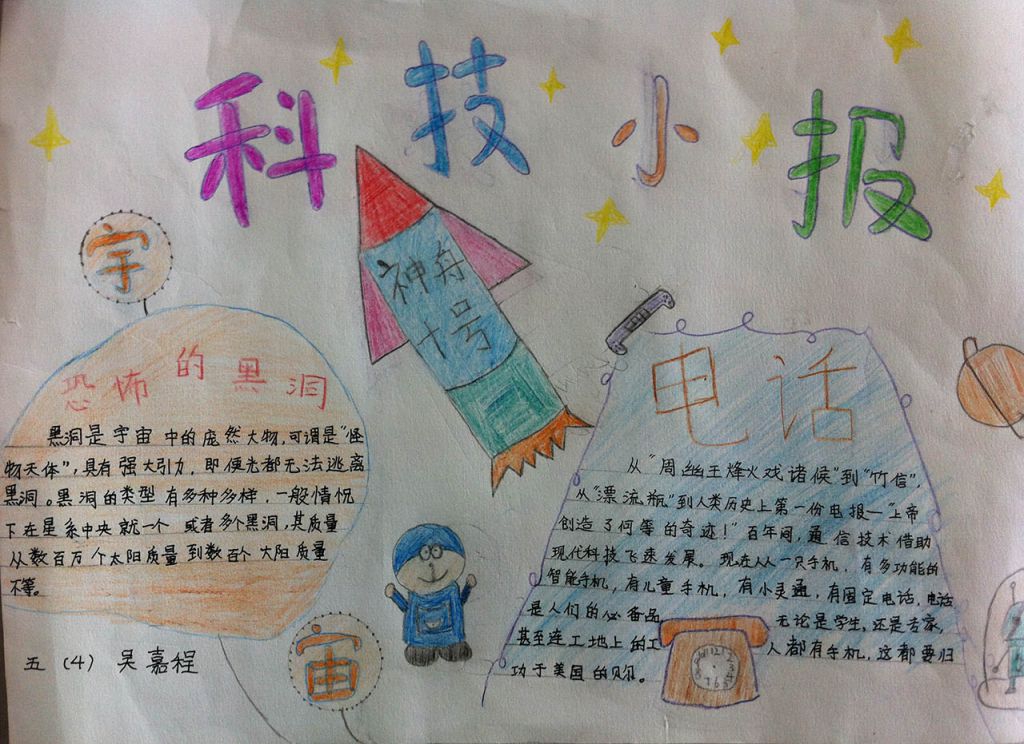 科技小报
宇
神舟
十号
恐怖的黑洞
黑洞是宇宙中的庞然大物,可谓是"怪
物天体",具有强大引力,即便光都无法逃离
黑洞。黑洞的类型有多种多样,一般情况
下在星系中央就一个或者多个黑洞,其质量
从数百万个太阳质量到数百个大阳质量
不等。
宙
五(4)吴嘉程
电话
从"周幽王烽火戏诸候"到"竹信",
从"漂流瓶"到人类历史上第一份电报—"上帝
创造了何等的奇迹!"百年间,通信技术借助
现代科技飞速发展。现在人人一只手机,有多功能的
智能手机,有儿童手机,有小灵通,有固定电话,电话
是人们的必备品 无论是学生,还是专家,
甚至连工地上的工 人都有手机,这都要归
功于美国的贝尔。